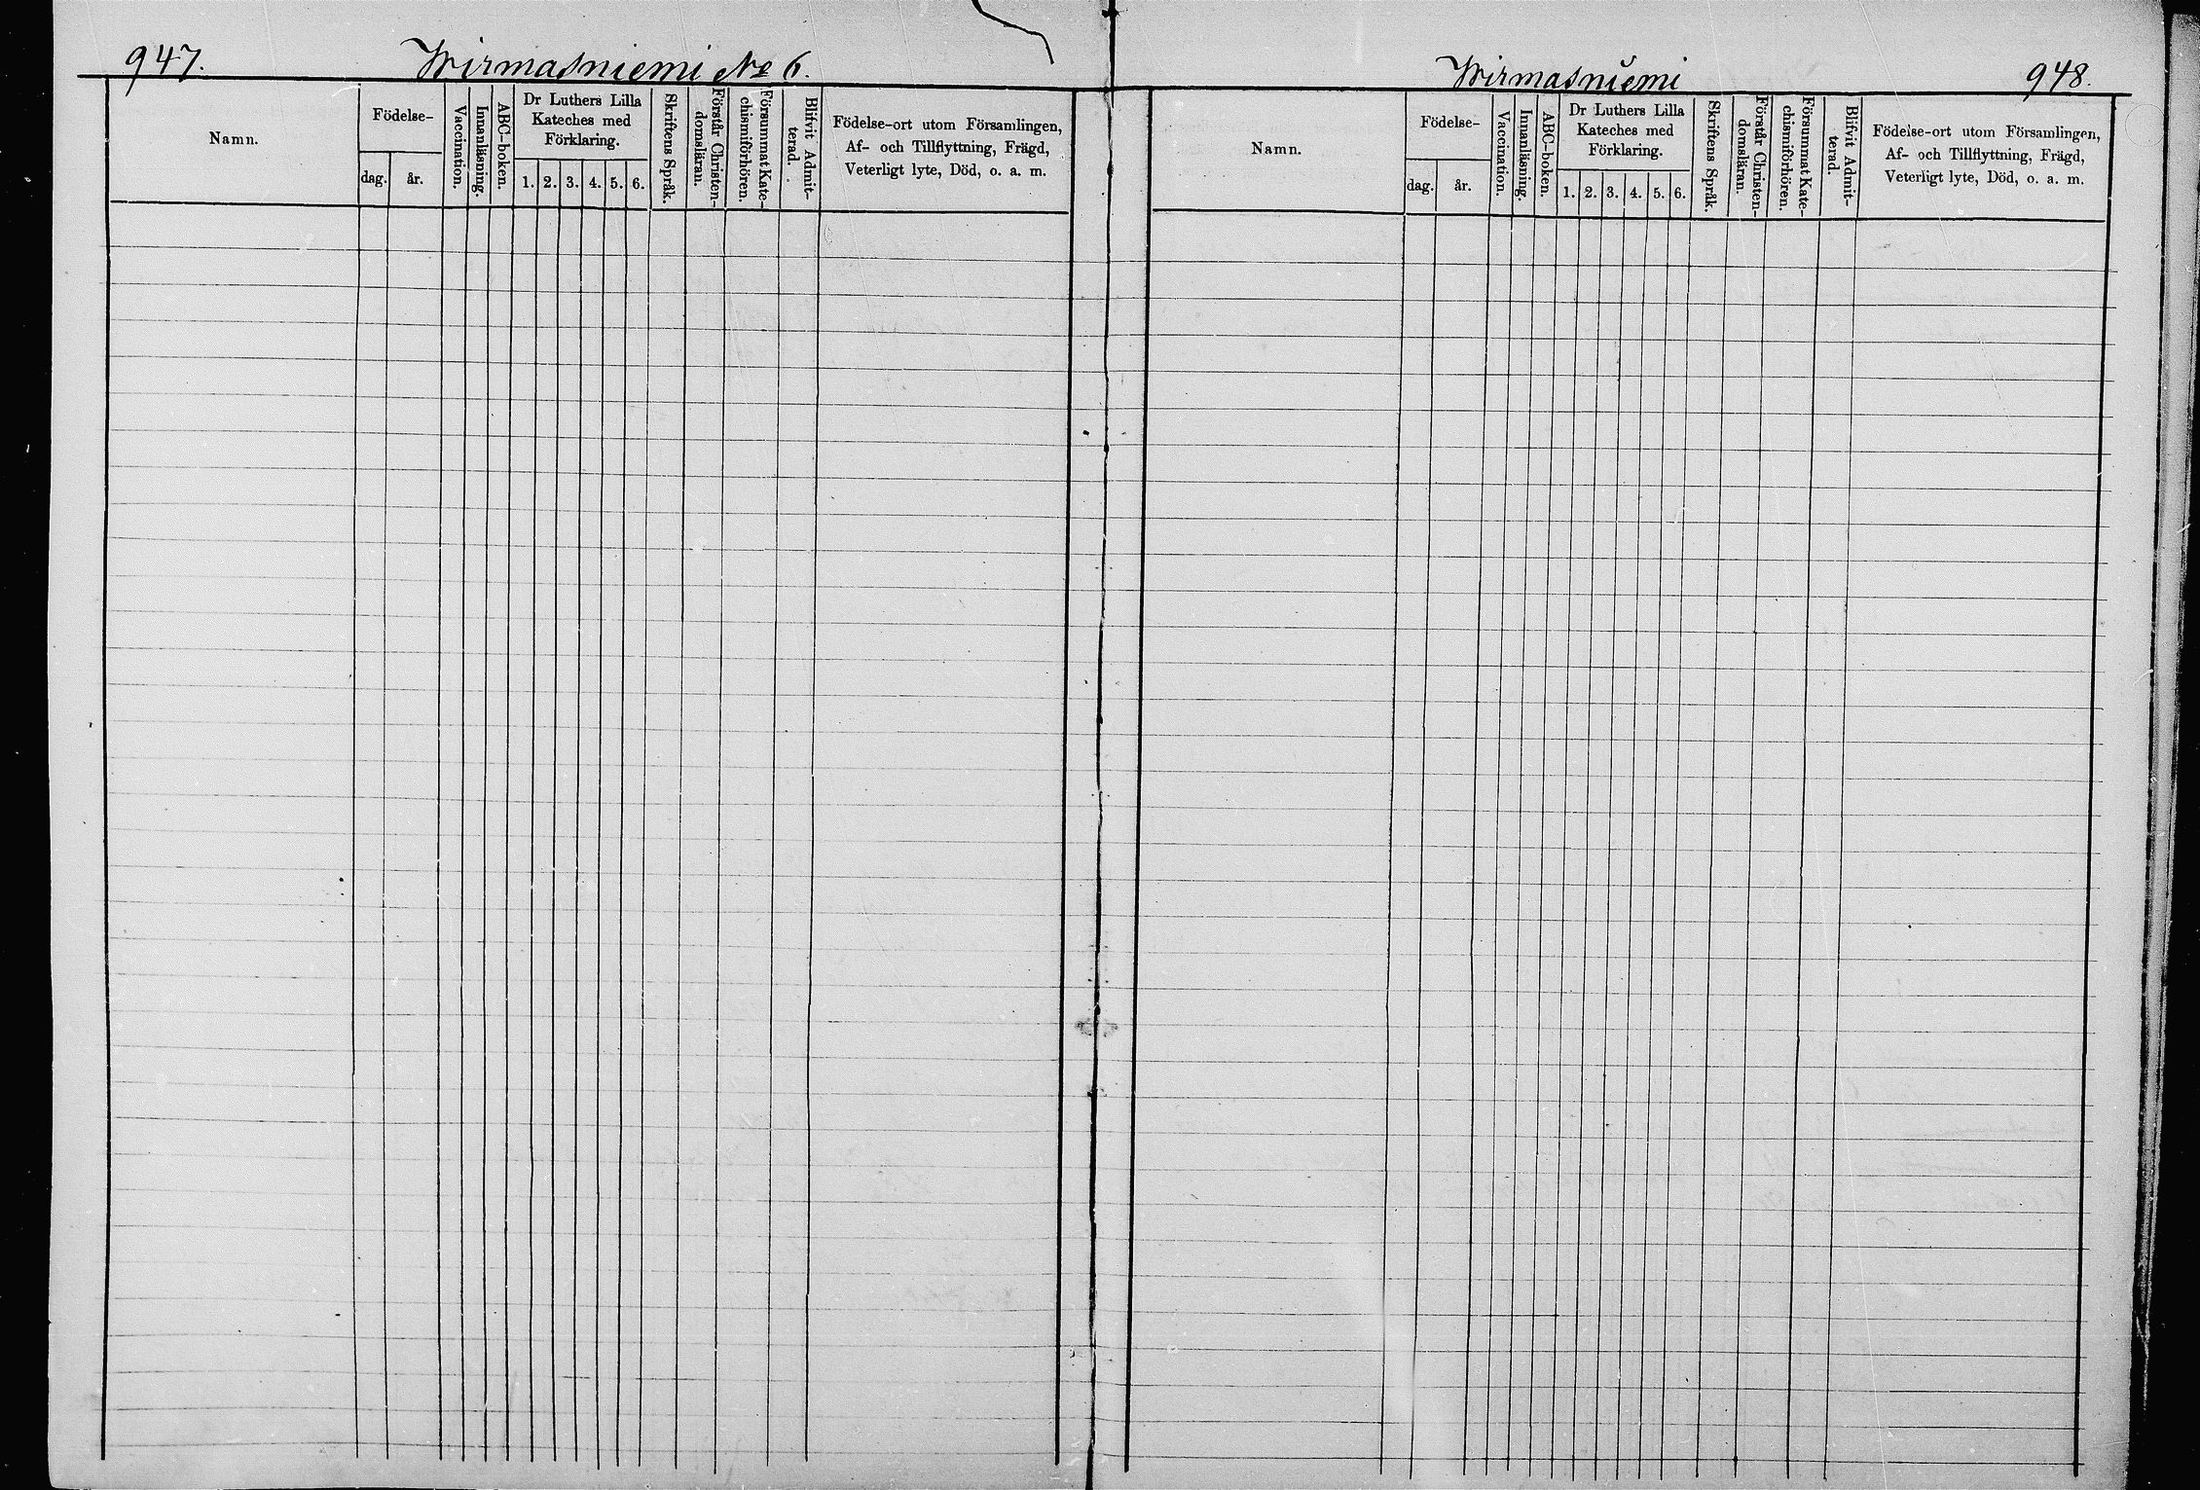 947. Wirmasniemi No 6.
Namn.
Födelse-
dag. år.
Vaccination.
Innanläsning.
ABC-boken.
Dr Luthers Lilla
Kateches med
Förklaring.
1. 2. 3. 4. 5. 6.
Skriftens Språk.
Förstår Christen-
domsläran.
Försummat Kate-
chismiförhören.
Blifvit Admit-
terad.
Födelse-ort utom Församlingen,
Af- och Tillflyttning, Frägd,
Veterligt lyte, Död, o. a. m.
Wirmasniemi 948.
Namn.
Födelse-
dag. år.
Vaccination.
Innanläsning.
ABC-boken.
Dr Luthers Lilla
Kateches med
Förklaring.
1. 2. 3. 4. 5. 6.
Skriftens Språk.
Förstår Christen-
domsläran.
Försummat Kate-
chismiförhören.
Blifvit Admit-
terad.
Födelse-ort utom Församlingen,
Af- och Tillflyttning, Frägd,
Veterligt lyte, Död, o. a. m.